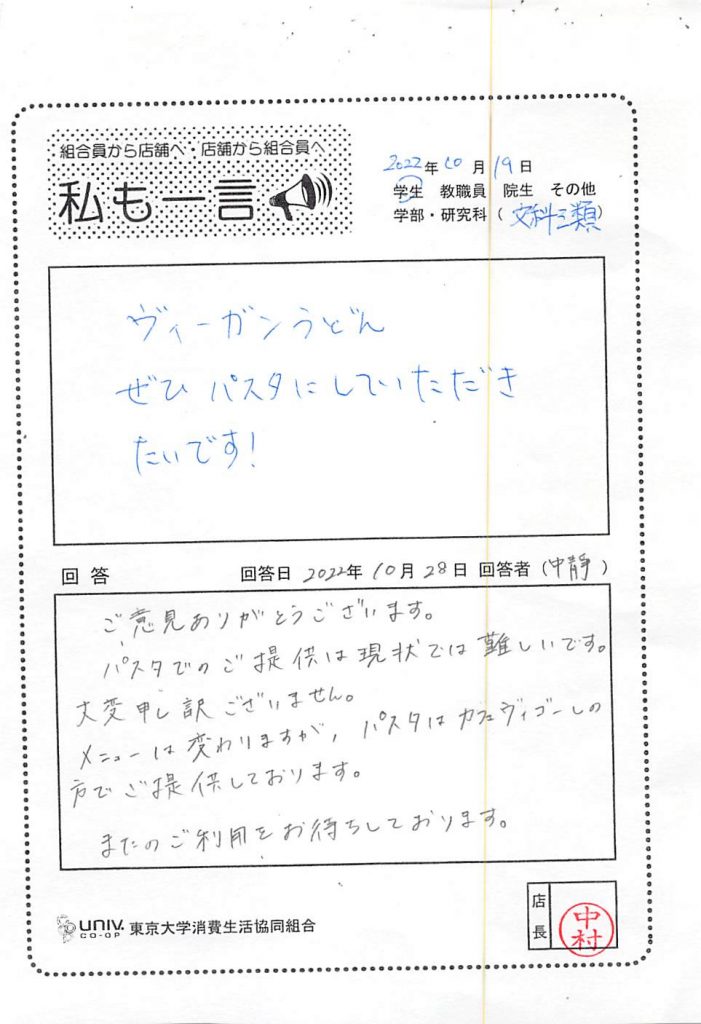 組合員から店舗へ・店舗から組合員へ
私も一言
2022年10月19日
学生 教職員 院生 その他
学部・研究科（文科三類）
ヴィーガンうどん
ぜひパスタにしていただき
たいです!
回答 回答日 2022年10月28日 回答者（中靜）
ご意見ありがとうございます。
パスタでのご提供は現状では難しいです。
大変申し訳ございません。
メニューは変わりますが、パスタはカフェヴィゴーレの
方でご提供しております。
またのご利用をお待ちしております。
UNIV. CO-OP 東京大学消費生活協同組合
店長
中村